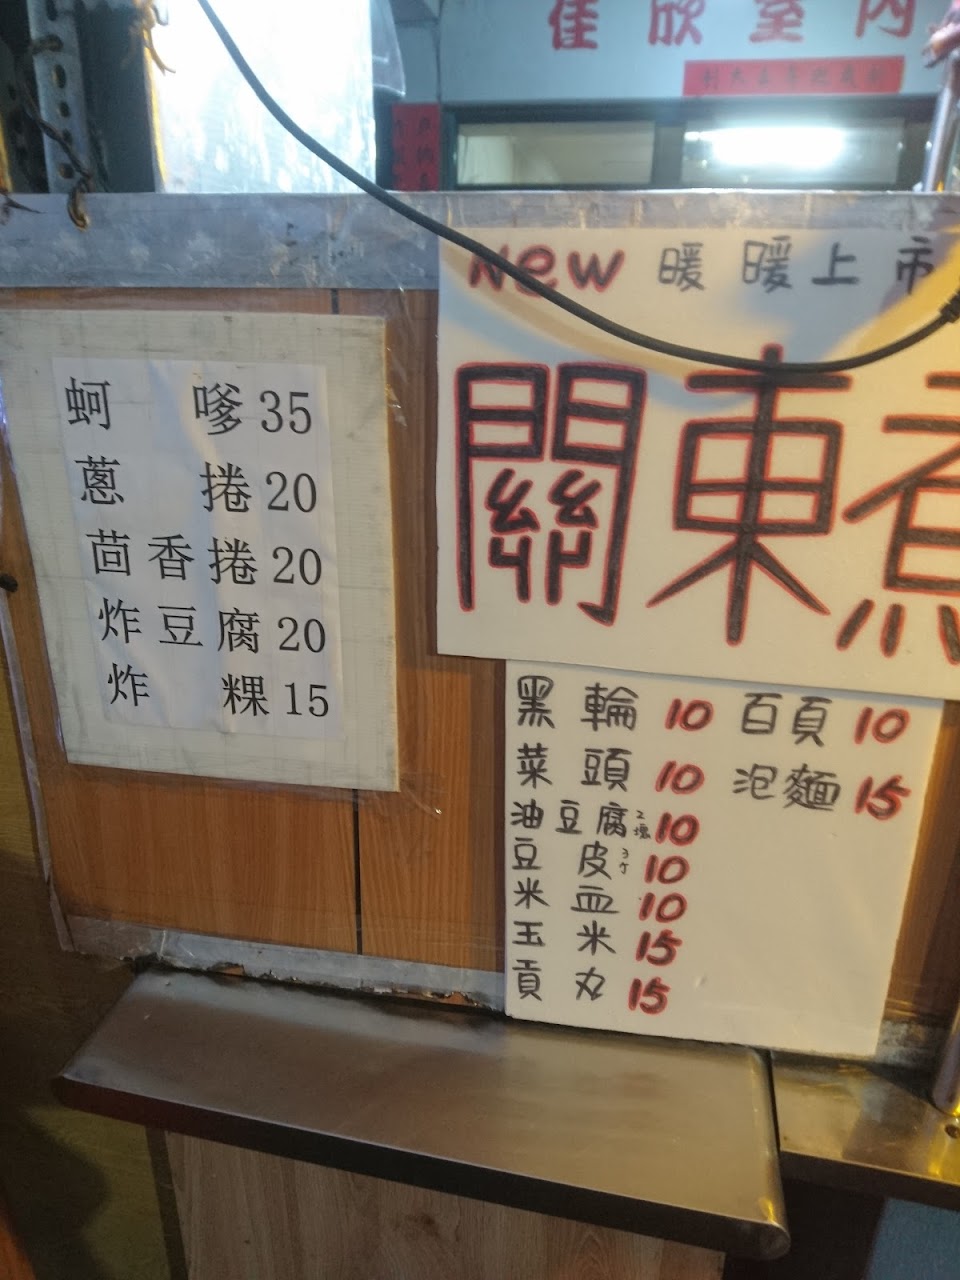 佳欣室內
蚵嗲35
蔥捲20
茴香捲20
炸豆腐20
炸粿15
New 暖暖上市
關東煮
黑輪 10
菜頭 10
油豆腐 2塊 10
豆皮 3個 10
米血 10
玉米 15
貢丸 15
百頁 10
泡麵 15